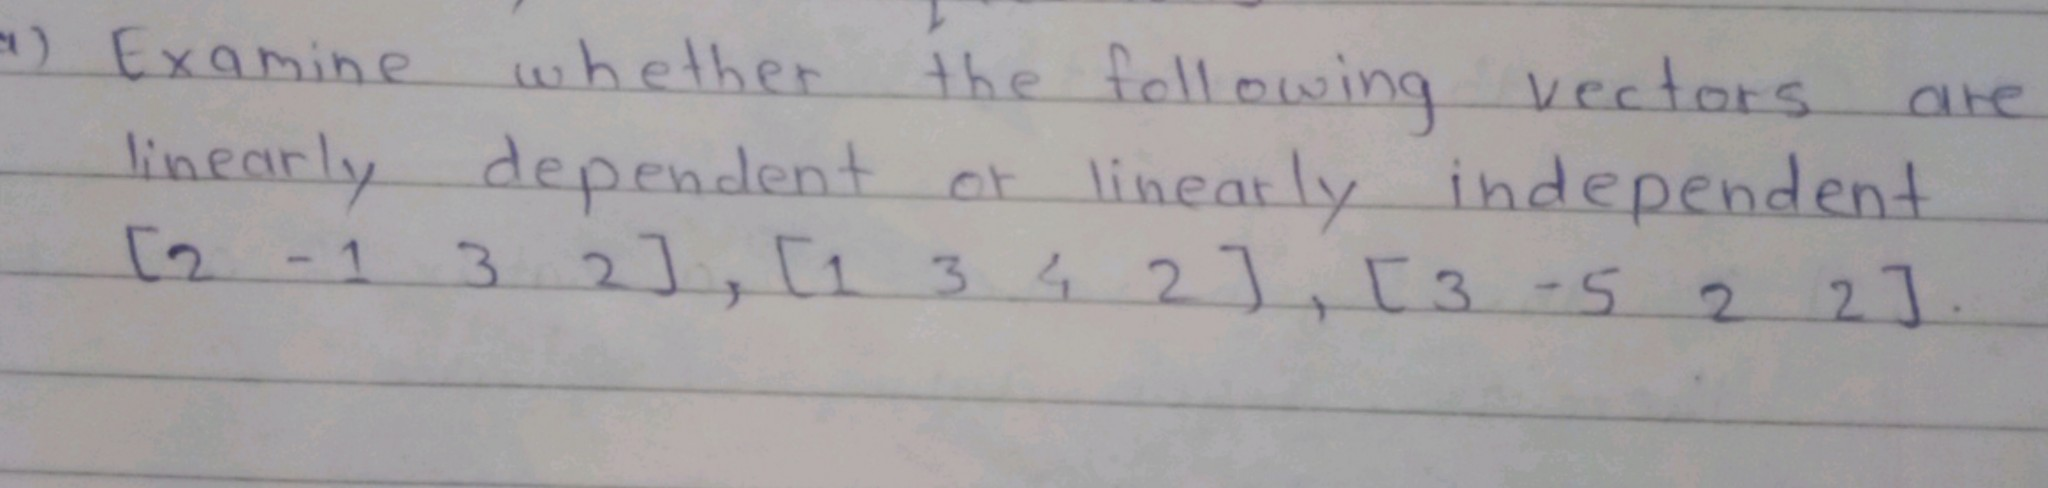 a) Examine whether the following vectors are
linearly dependent or linearly independent
[2 -1 3 2], [1 3 4 2], [3 -5 2 2].